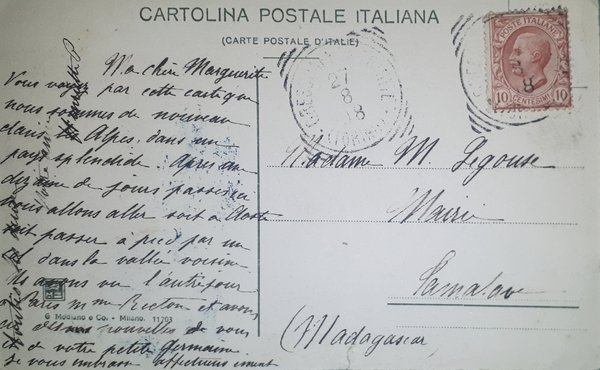 CARTOLINA POSTALE ITALIANA
(CARTE POSTALE D'ITALIE)
Ma chère Marguerite
Vous voyez par cette carte que
nous sommes de nouveau
dans les Alpes, dans un
pays splendide. Après une
dizaine de jours passés ici
nous allons aller soit à Aoste
soit passer à pied par un
dans la vallée voisine
Nous avons vu l'autre jour
à Paris Mme et avons
eu des nouvelles de vous
et de votre petite Germaine
Je vous embrasse affectueusement
© Modiano e Co. - Milano. 11703
POSTE ITALIANE
10 CENTESIMI 10
27
8
08
8
Madame M. Legouse
Mairie
(Madagascar)